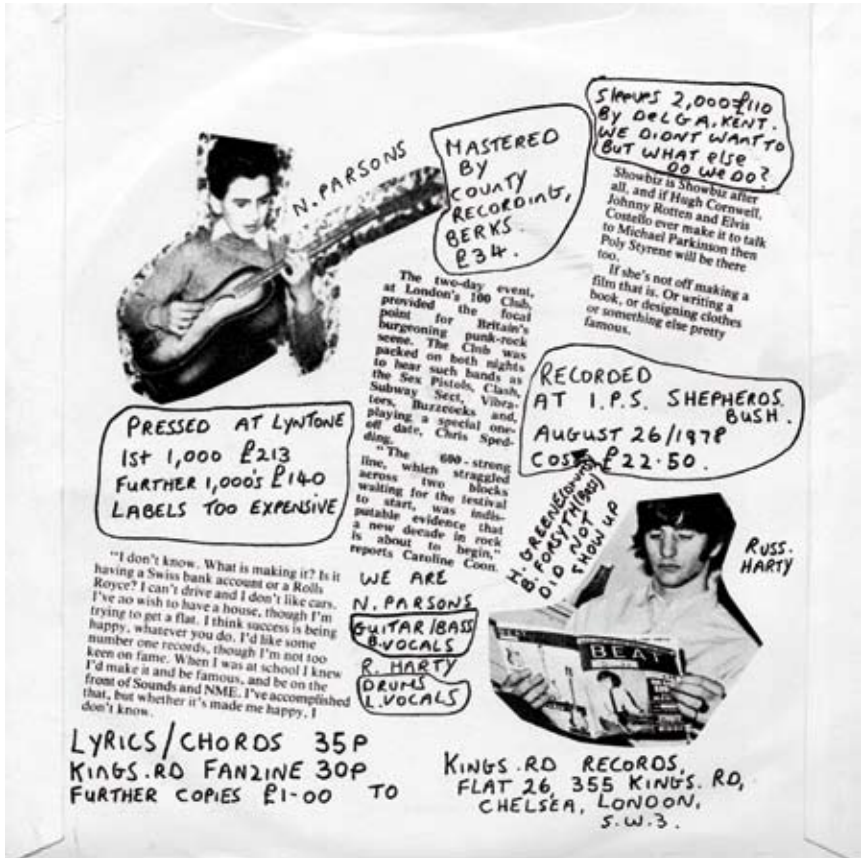 N. PARSONS
MASTERED
BY
COUNTY
RECORDING,
BERKS
£34.
Sleeves 2,000=£110
By DELGA, KENT.
WE DIDNT WANT TO
BUT WHAT else
DO WE DO?
Showbiz is Showbiz after
all, and if Hugh Cornwell,
Johnny Rotten and Elvis
Costello ever make it to talk
to Michael Parkinson then
Poly Styrene will be there
too.
If she's not off making a
film that is. Or writing a
book, or designing clothes
or something else pretty
famous.
The two-day event,
at London's 100 Club,
provided the focal
point for Britain's
burgeoning punk-rock
scene. The Club was
packed on both nights
to hear such bands as
the Sex Pistols, Clash,
Subway Sect, Vibra-
tors, Buzzcocks and,
playing a special one-
off date, Chris Sped-
ding.
"The 600-strong
line, which straggled
across two blocks
waiting for the festival
to start, was indis-
putable evidence that
a new decade in rock
is about to begin,"
reports Caroline Coon.
RECORDED
AT I.P.S. SHEPHERDS.
BUSH.
AUGUST 26/1978
COST £22.50.
PRESSED AT LYNTONE
1st 1,000 £213
FURTHER 1,000's £140
LABELS TOO EXPENSIVE
H. GREENE
B. FORSYTH (BASS)
DID NOT
SHOW UP
RUSS.
HARTY
BEAT
"I don't know. What is making it? Is it
having a Swiss bank account or a Rolls
Royce? I can't drive and I don't like cars.
I've no wish to have a house, though I'm
trying to get a flat. I think success is being
happy, whatever you do. I'd like some
number one records, though I'm not too
keen on fame. When I was at school I knew
I'd make it and be famous, and be on the
front of Sounds and NME. I've accomplished
that, but whether it's made me happy, I
don't know.
WE ARE
N. PARSONS
GUITAR/BASS
B. VOCALS
R. HARTY
DRUMS
L. VOCALS
LYRICS/CHORDS 35P
KINGS.RD FANZINE 30P
FURTHER COPIES £1-00 TO
KINGS.RD RECORDS,
FLAT 26, 355 KINGS. RD,
CHELSEA, LONDON,
S.W.3.